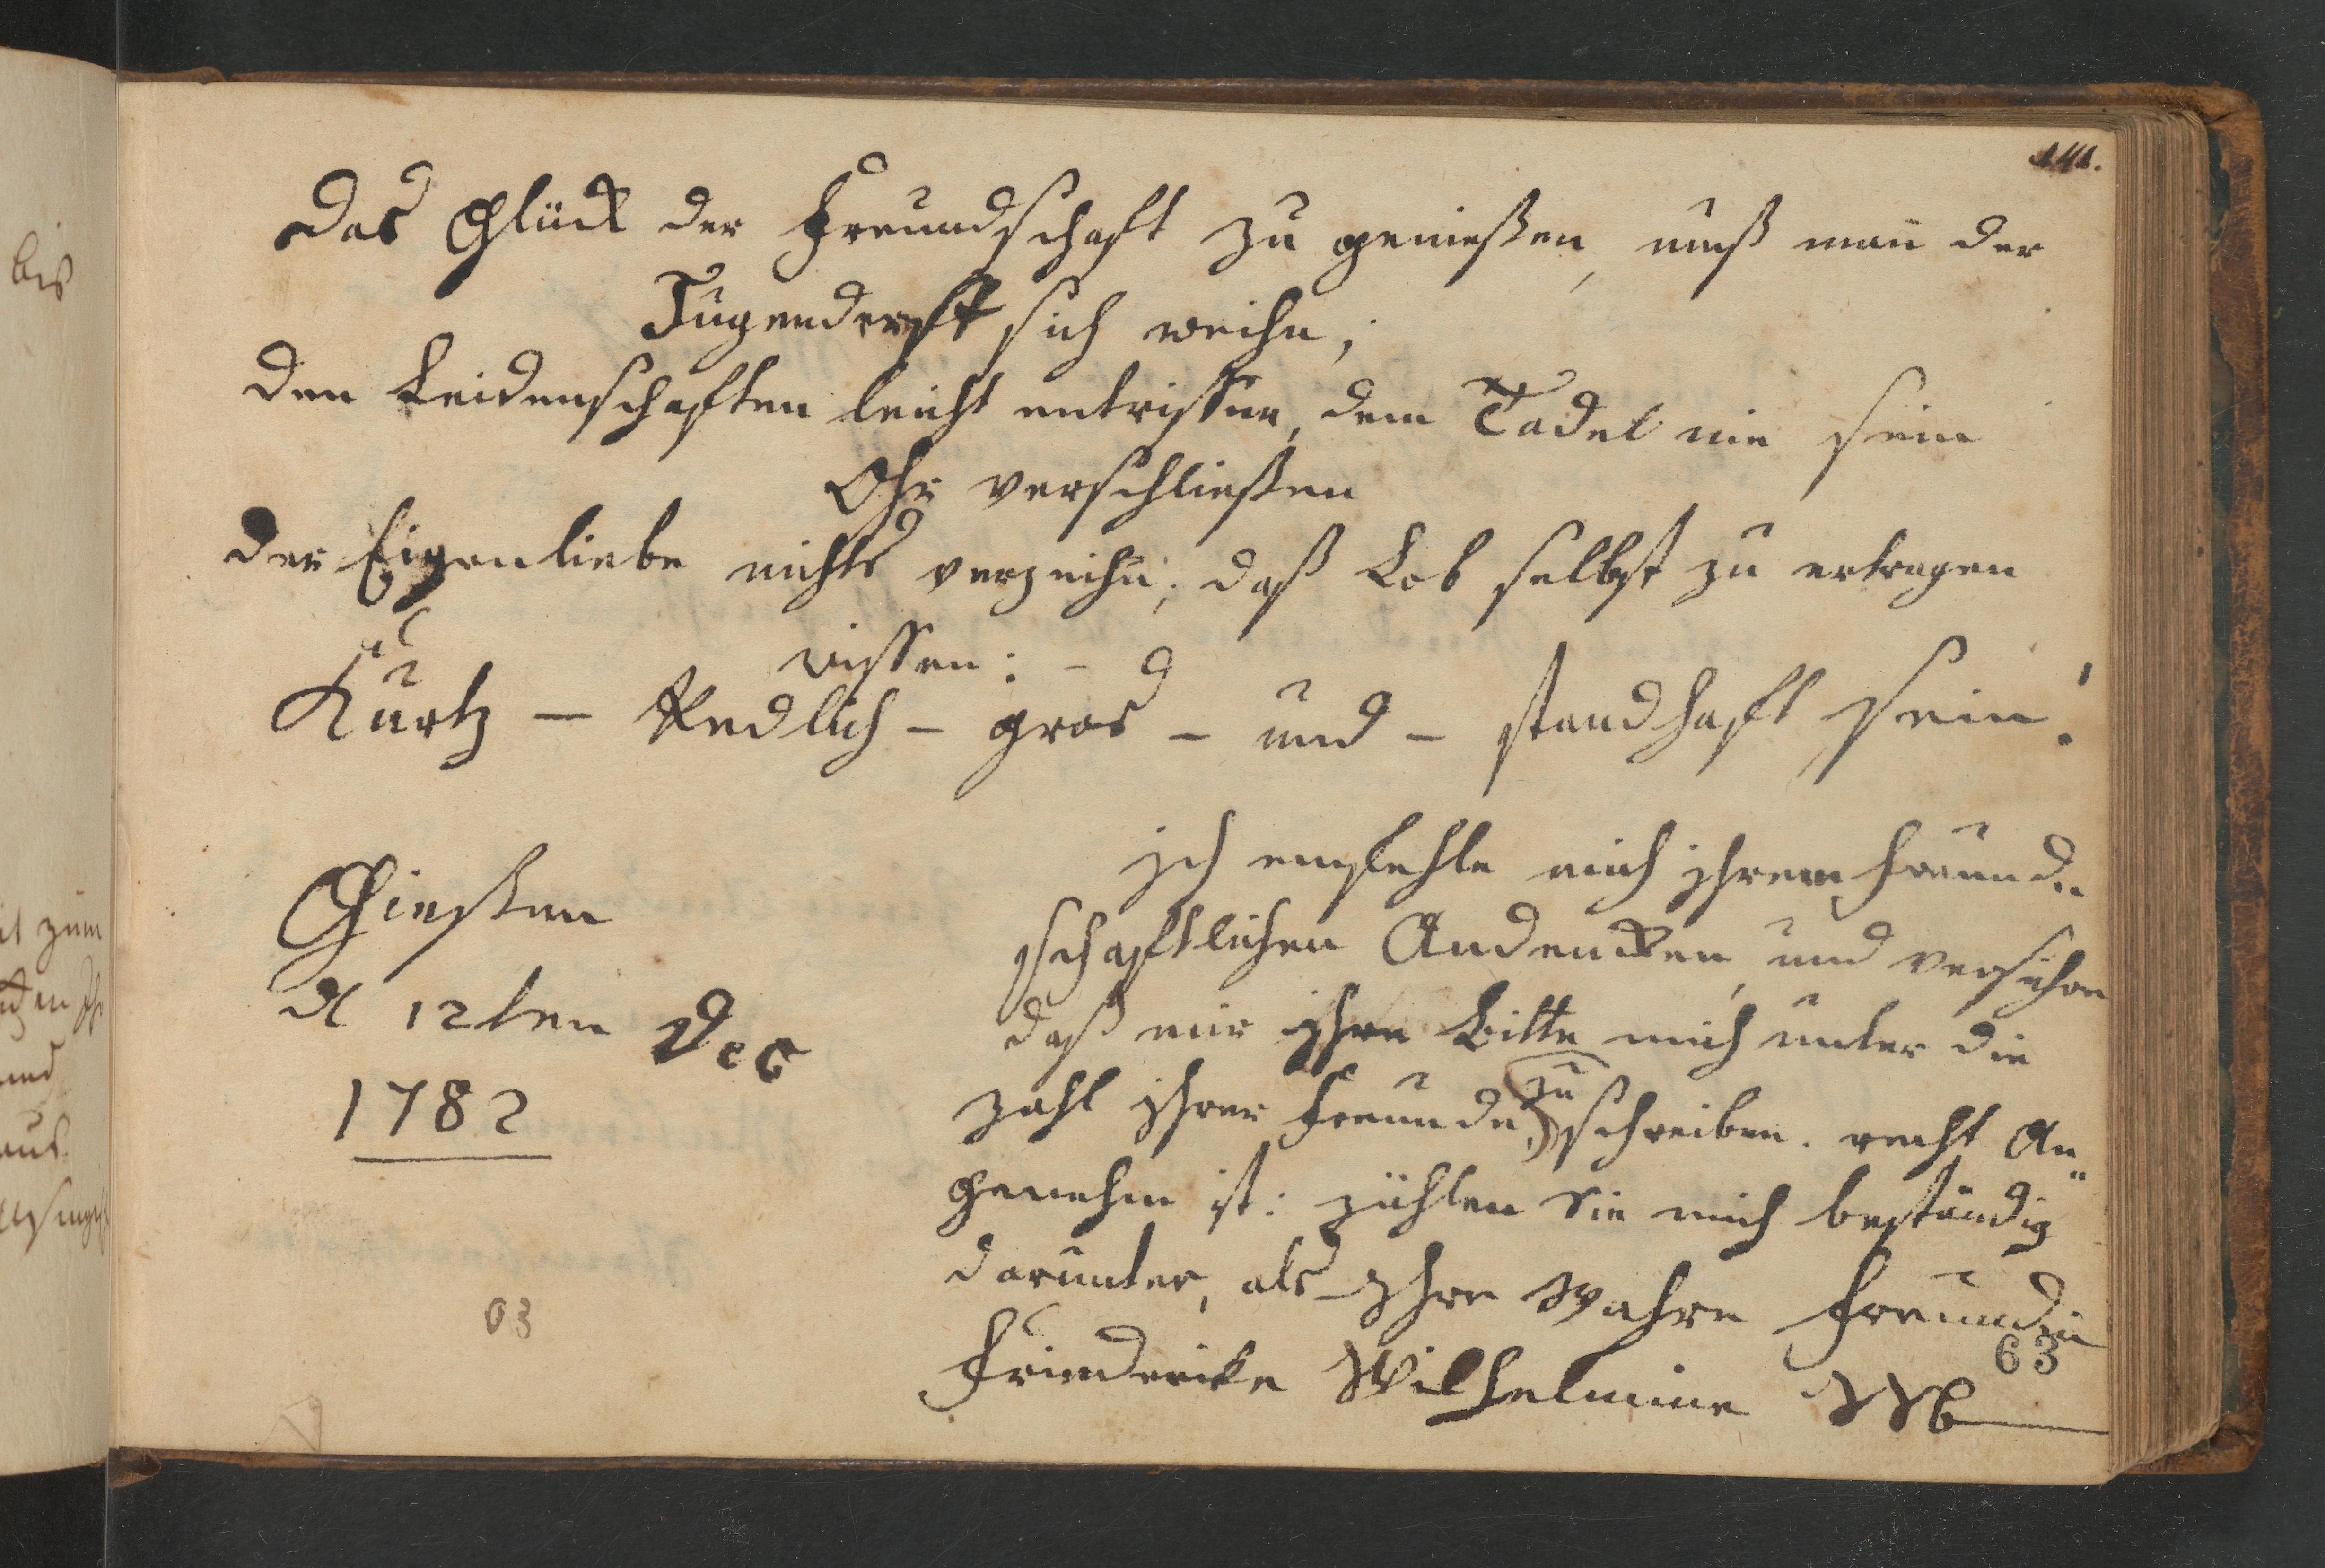 141.
Das Glück der Freundschaft zu genießen, muß man der
Tugend erst sich weihn;
den Leidenschaften leicht entrissen, dem Tadel nie sein
Ohr verschließen
der Eigenliebe nichts verzeihn; daß Lob selbst zu ertragen
wissen: -
Kurtz - Redlich - gros - und - standhaft sein!
Gießen
d 12ten Dec
1782
Ich empfehle mich ihrem freund„
schaftlichen Andencken, und versichre
daß mir ihre Bitte mich unter die
zahl ihrer Freunde, zu schreiben. recht An„
genehm ist: zählen Sie mich beständig
darunter, als Ihre Wahre freundin
Friederike Wilhelmine
63
03
bis
zum
und
aus